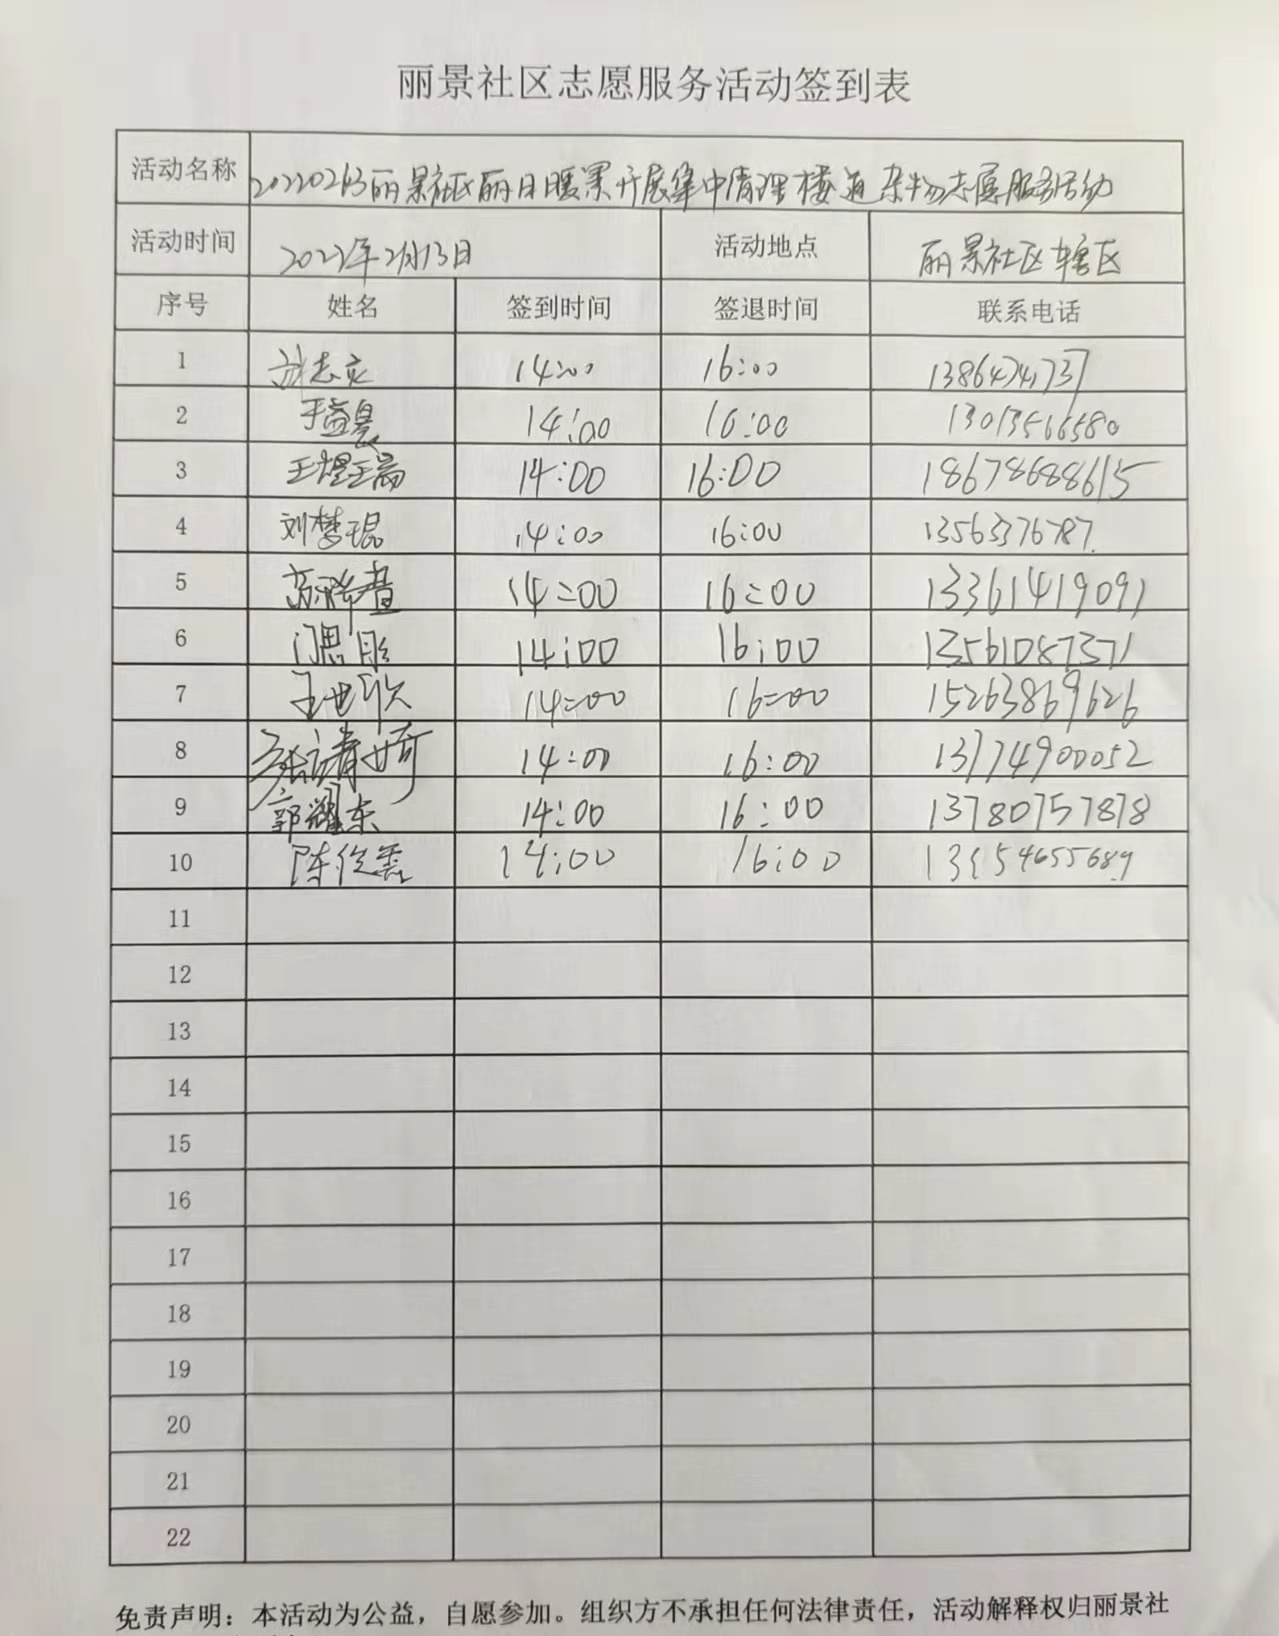 丽景社区志愿服务活动签到表
活动名称 20220213丽景社区丽日暖景开展集中清理楼道杂物志愿服务活动
活动时间 2022年2月13日 活动地点 丽景社区辖区
序号 姓名 签到时间 签退时间 联系电话
1 14:00 16:00
2 于益昊 14:00 16:00 13013566580
3 王煜瑞 14:00 16:00 18678688615
4 刘梦琨 14:00 16:00 13563376787
5 14:00 16:00 13361419091
6 门思彤 14:00 16:00 13561087371
7 王世欣 14:00 16:00 15263869626
8 张婧琦 14:00 16:00 13774900052
9 郭耀东 14:00 16:00 13780757878
10 14:00 16:00
11
12
13
14
15
16
17
18
19
20
21
22
免责声明：本活动为公益，自愿参加。组织方不承担任何法律责任，活动解释权归丽景社